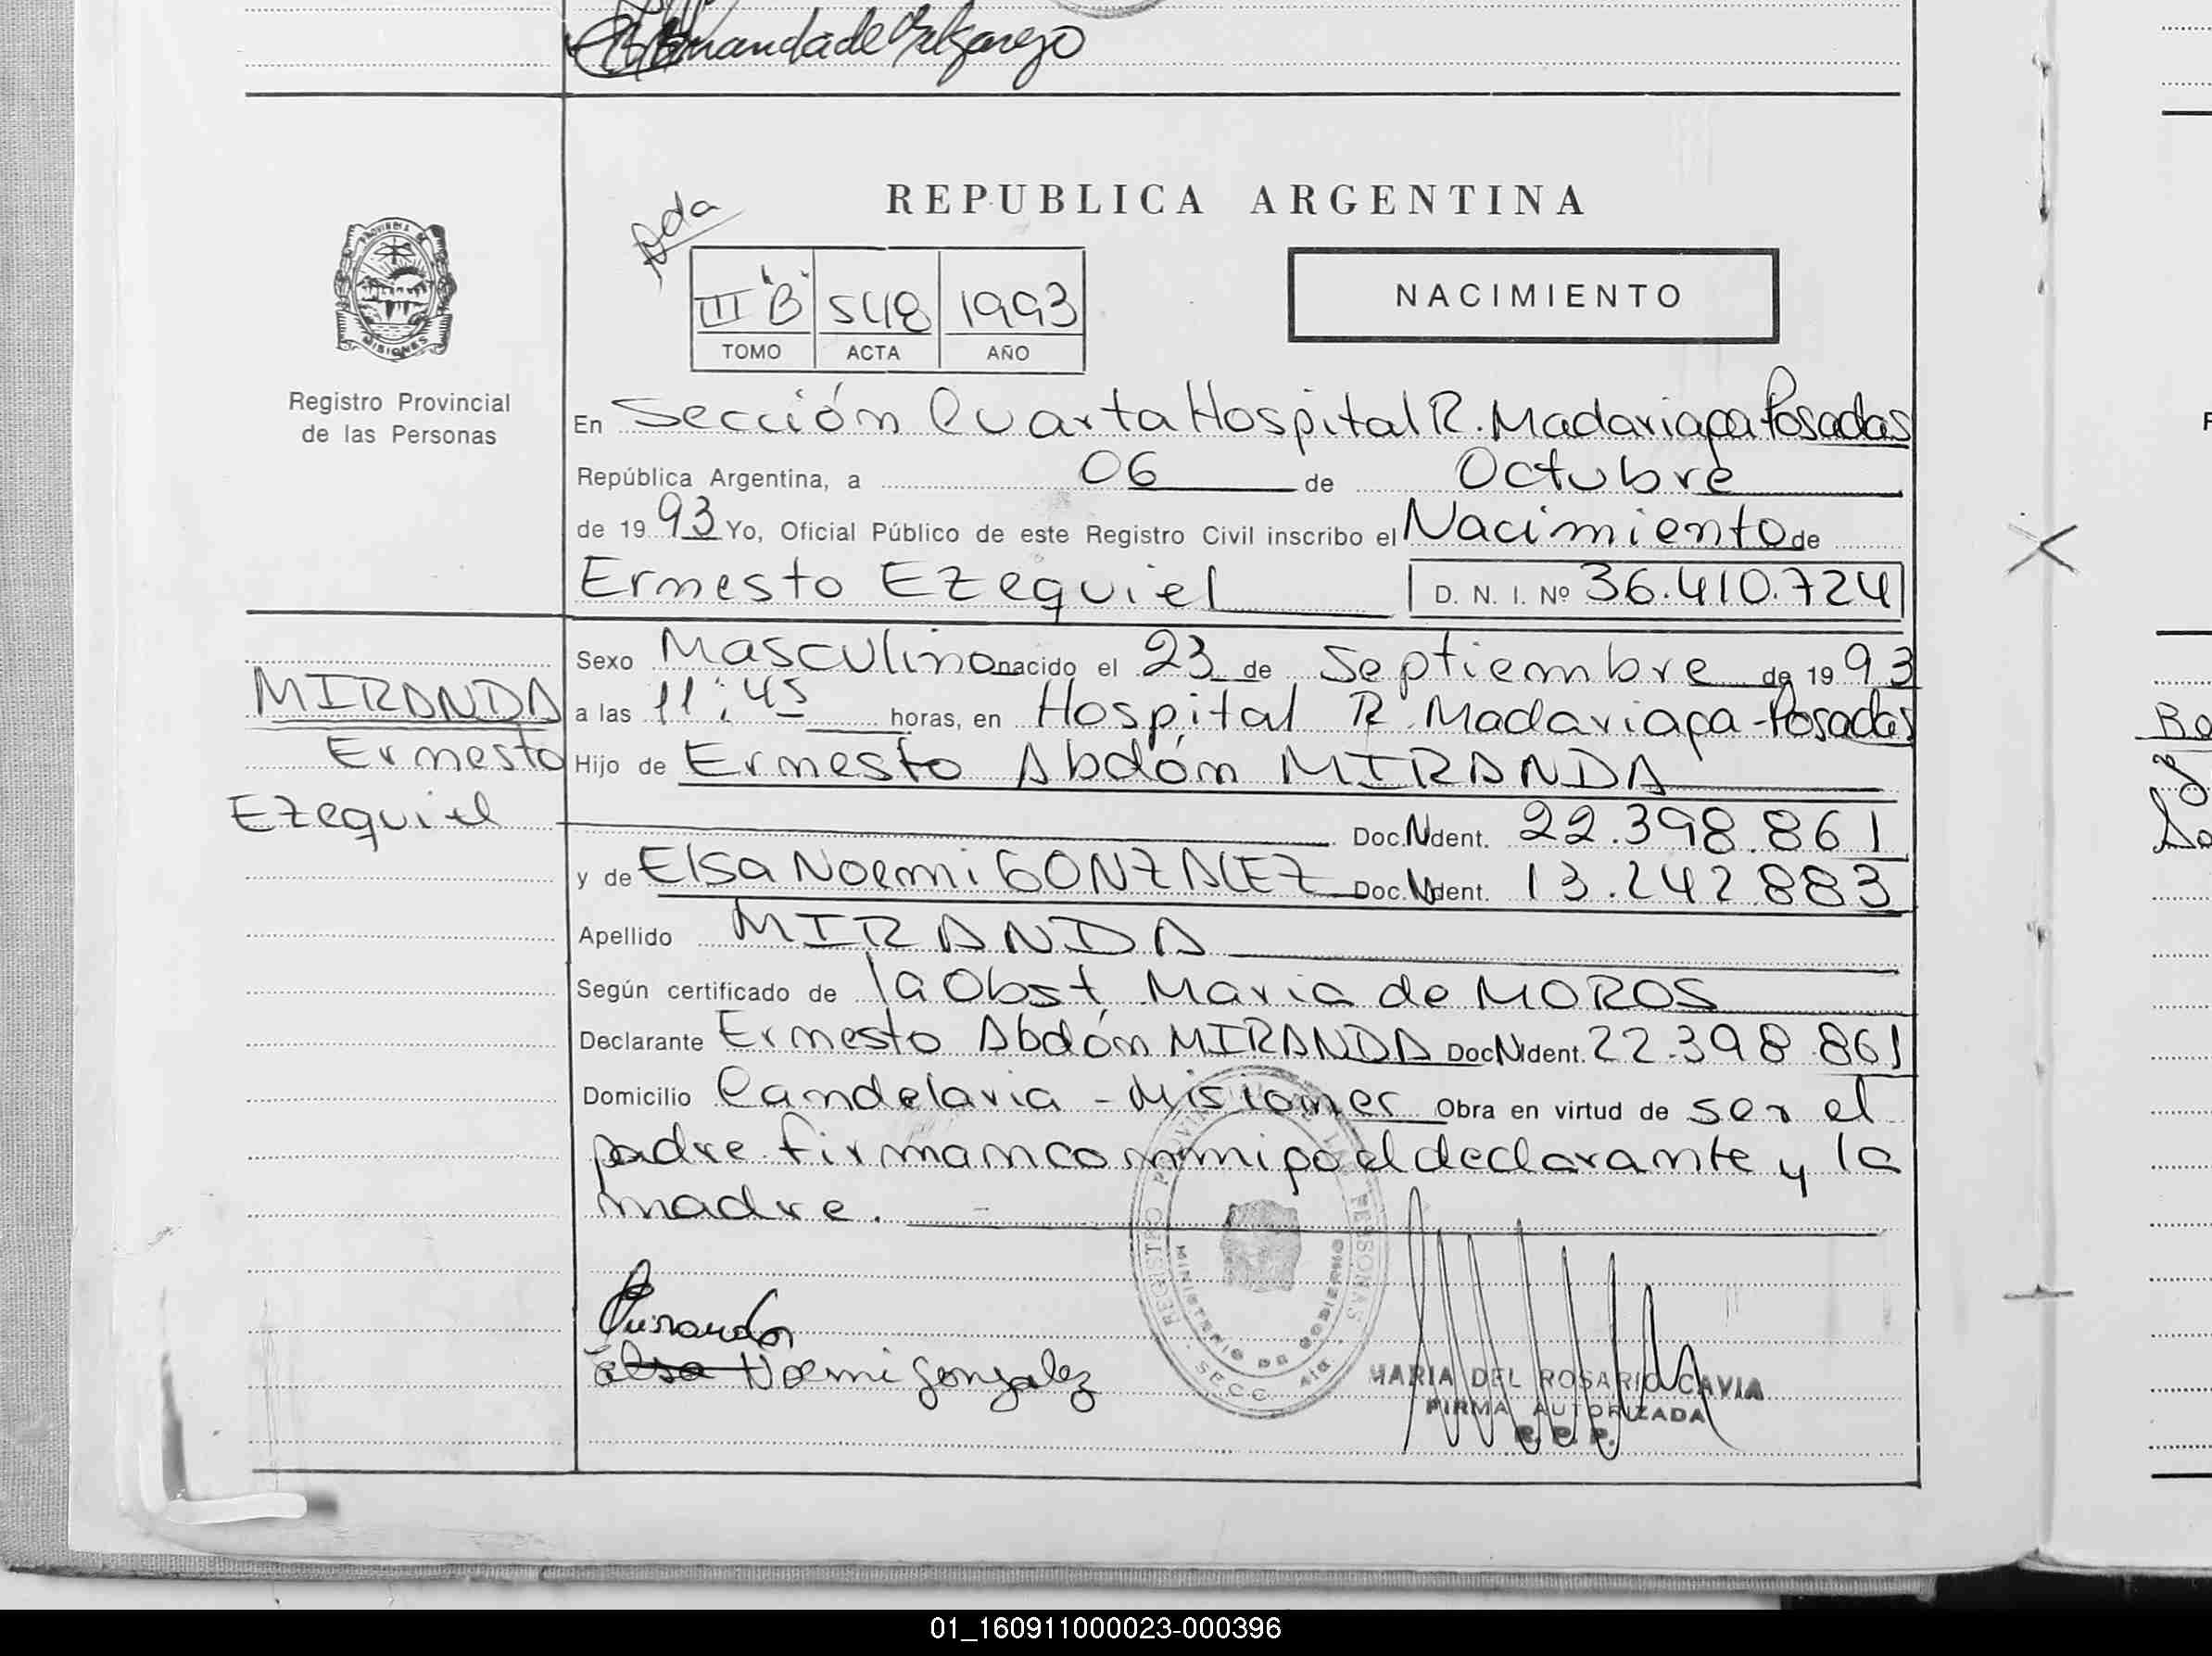 REPUBLICA ARGENTINA
Ada
III "B" 548 1993
TOMO ACTA AÑO
NACIMIENTO
PROVINCIA DE MISIONES
Registro Provincial
de las Personas
En Sección Cuarta Hospital R. Madariaga Posadas
República Argentina, a 06 de Octubre
de 1993 Yo, Oficial Público de este Registro Civil inscribo el Nacimiento de
Ernesto Ezequiel D. N. I. Nº 36.410.724
MIRANDA
Ernesto
Ezequiel
Sexo Masculino nacido el 23 de Septiembre de 1993
a las 11:45 horas, en Hospital R. Madariaga - Posadas
Hijo de Ernesto Abdón MIRANDA
Doc. Ident. 22.398.861
y de Elsa Noemi GONZALEZ Doc. Ident. 13.242.883
Apellido MIRANDA
Según certificado de la Obst. Maria de MOROS
Declarante Ernesto Abdón MIRANDA Doc Ident. 22.398.861
Domicilio Candelaria - Misiones Obra en virtud de ser el
padre firman conmigo el declarante y la
madre.
REGISTRO PROVINCIAL DE LAS PERSONAS
MINISTERIO DE GOBIERNO
SECC. 4ta.
Elsa Noemi Gonzalez
MARIA DEL ROSARIO CAVIA
FIRMA AUTORIZADA
R. P. P.
01_160911000023-000396